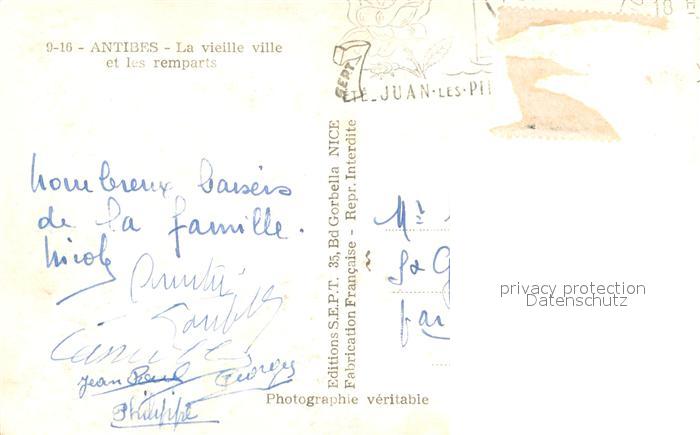 9-16 - ANTIBES - La vieille ville
et les remparts
SEPT
ETÉ_JUAN·LES·PI
18 H
nombreux baisers
de la famille.
Nicole
Jean Paul Georges
Philippe
Editions S.E.P.T. 35, Bd Gorbella NICE
Fabrication Française - Repr. Interdite
Mr
Photographie véritable
privacy protection
Datenschutz